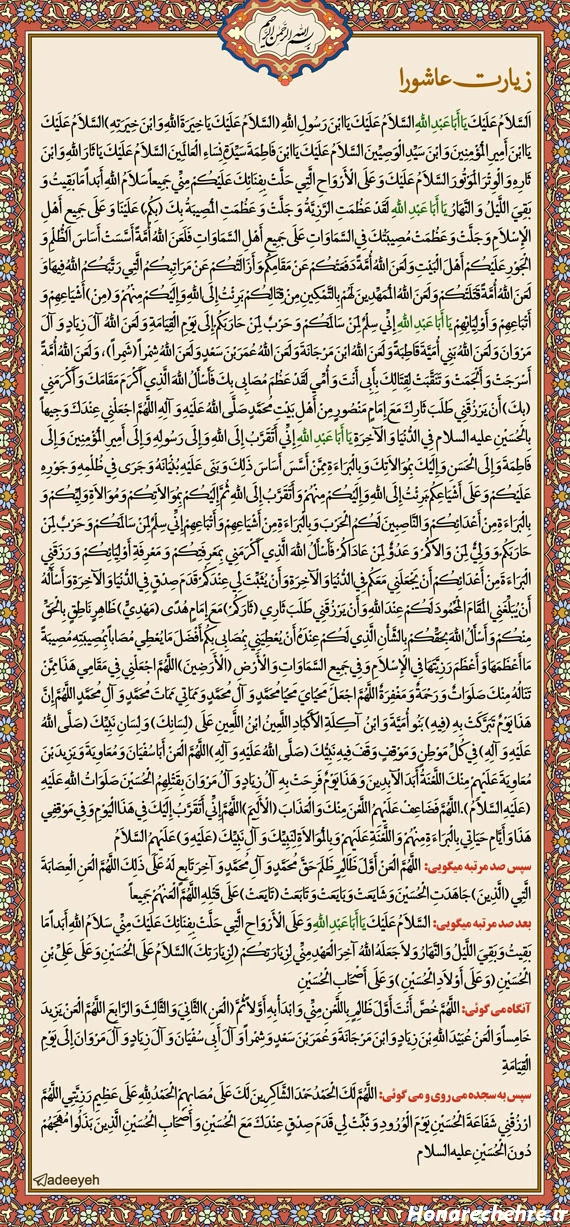 بسم الله الرحمن الرحیم
زیارت عاشورا
اَلسَّلاَمُ عَلَيْكَ يَا أَبَا عَبْدِ اللَّهِ السَّلاَمُ عَلَيْكَ يَا ابْنَ رَسُولِ اللَّهِ (السَّلاَمُ عَلَيْكَ يَا خِيَرَةَ اللَّهِ وَ ابْنَ خِيَرَتِهِ) السَّلاَمُ عَلَيْكَ
يَا ابْنَ أَمِيرِ الْمُؤْمِنِينَ وَ ابْنَ سَيِّدِ الْوَصِيِّينَ السَّلاَمُ عَلَيْكَ يَا ابْنَ فَاطِمَةَ سَيِّدَةِ نِسَاءِ الْعَالَمِينَ السَّلاَمُ عَلَيْكَ يَا ثَارَ اللَّهِ وَ ابْنَ
ثَارِهِ وَ الْوِتْرَ الْمَوْتُورَ السَّلاَمُ عَلَيْكَ وَ عَلَى الْأَرْوَاحِ الَّتِي حَلَّتْ بِفِنَائِكَ عَلَيْكُمْ مِنِّي جَمِيعاً سَلاَمُ اللَّهِ أَبَداً مَا بَقِيتُ وَ
بَقِيَ اللَّيْلُ وَ النَّهَارُ يَا أَبَا عَبْدِ اللَّهِ لَقَدْ عَظُمَتِ الرَّزِيَّةُ وَ جَلَّتْ وَ عَظُمَتِ الْمُصِيبَةُ بِكَ (بِكُمْ) عَلَيْنَا وَ عَلَى جَمِيعِ أَهْلِ
الْإِسْلاَمِ وَ جَلَّتْ وَ عَظُمَتْ مُصِيبَتُكَ فِي السَّمَاوَاتِ عَلَى جَمِيعِ أَهْلِ السَّمَاوَاتِ فَلَعَنَ اللَّهُ أُمَّةً أَسَّسَتْ أَسَاسَ الظُّلْمِ وَ
الْجَوْرِ عَلَيْكُمْ أَهْلَ الْبَيْتِ وَ لَعَنَ اللَّهُ أُمَّةً دَفَعَتْكُمْ عَنْ مَقَامِكُمْ وَ أَزَالَتْكُمْ عَنْ مَرَاتِبِكُمُ الَّتِي رَتَّبَكُمُ اللَّهُ فِيهَا وَ
لَعَنَ اللَّهُ أُمَّةً قَتَلَتْكُمْ وَ لَعَنَ اللَّهُ الْمُمَهِّدِينَ لَهُمْ بِالتَّمْكِينِ مِنْ قِتَالِكُمْ بَرِئْتُ إِلَى اللَّهِ وَ إِلَيْكُمْ مِنْهُمْ وَ (مِنْ) أَشْيَاعِهِمْ وَ
أَتْبَاعِهِمْ وَ أَوْلِيَائِهِمْ يَا أَبَا عَبْدِ اللَّهِ إِنِّي سِلْمٌ لِمَنْ سَالَمَكُمْ وَ حَرْبٌ لِمَنْ حَارَبَكُمْ إِلَى يَوْمِ الْقِيَامَةِ وَ لَعَنَ اللَّهُ آلَ زِيَادٍ وَ آلَ
مَرْوَانَ وَ لَعَنَ اللَّهُ بَنِي أُمَيَّةَ قَاطِبَةً وَ لَعَنَ اللَّهُ ابْنَ مَرْجَانَةَ وَ لَعَنَ اللَّهُ عُمَرَ بْنَ سَعْدٍ وَ لَعَنَ اللَّهُ شِمْراً (شَمِراً)، وَ لَعَنَ اللَّهُ أُمَّةً
أَسْرَجَتْ وَ أَلْجَمَتْ وَ تَنَقَّبَتْ لِقِتَالِكَ بِأَبِي أَنْتَ وَ أُمِّي لَقَدْ عَظُمَ مُصَابِي بِكَ فَأَسْأَلُ اللَّهَ الَّذِي أَكْرَمَ مَقَامَكَ وَ أَكْرَمَنِي
(بِكَ) أَنْ يَرْزُقَنِي طَلَبَ ثَارِكَ مَعَ إِمَامٍ مَنْصُورٍ مِنْ أَهْلِ بَيْتِ مُحَمَّدٍ صَلَّى اللَّهُ عَلَيْهِ وَ آلِهِ اللَّهُمَّ اجْعَلْنِي عِنْدَكَ وَجِيهاً
بِالْحُسَيْنِ علیه السلام فِي الدُّنْيَا وَ الْآخِرَةِ يَا أَبَا عَبْدِ اللَّهِ إِنِّي أَتَقَرَّبُ إِلَى اللَّهِ وَ إِلَى رَسُولِهِ وَ إِلَى أَمِيرِ الْمُؤْمِنِينَ وَ إِلَى
فَاطِمَةَ وَ إِلَى الْحَسَنِ وَ إِلَيْكَ بِمُوَالاَتِكَ وَ بِالْبَرَاءَةِ مِمَّنْ أَسَّسَ أَسَاسَ ذَلِكَ وَ بَنَى عَلَيْهِ بُنْيَانَهُ وَ جَرَى فِي ظُلْمِهِ وَ جَوْرِهِ
عَلَيْكُمْ وَ عَلَى أَشْيَاعِكُمْ بَرِئْتُ إِلَى اللَّهِ وَ إِلَيْكُمْ مِنْهُمْ وَ أَتَقَرَّبُ إِلَى اللَّهِ ثُمَّ إِلَيْكُمْ بِمُوَالاَتِكُمْ وَ مُوَالاَةِ وَلِيِّكُمْ وَ
بِالْبَرَاءَةِ مِنْ أَعْدَائِكُمْ وَ النَّاصِبِينَ لَكُمُ الْحَرْبَ وَ بِالْبَرَاءَةِ مِنْ أَشْيَاعِهِمْ وَ أَتْبَاعِهِمْ إِنِّي سِلْمٌ لِمَنْ سَالَمَكُمْ وَ حَرْبٌ لِمَنْ
حَارَبَكُمْ وَ وَلِيٌّ لِمَنْ وَالاَكُمْ وَ عَدُوٌّ لِمَنْ عَادَاكُمْ فَأَسْأَلُ اللَّهَ الَّذِي أَكْرَمَنِي بِمَعْرِفَتِكُمْ وَ مَعْرِفَةِ أَوْلِيَائِكُمْ وَ رَزَقَنِي
الْبَرَاءَةَ مِنْ أَعْدَائِكُمْ أَنْ يَجْعَلَنِي مَعَكُمْ فِي الدُّنْيَا وَ الْآخِرَةِ وَ أَنْ يُثَبِّتَ لِي عِنْدَكُمْ قَدَمَ صِدْقٍ فِي الدُّنْيَا وَ الْآخِرَةِ وَ أَسْأَلُهُ
أَنْ يُبَلِّغَنِي الْمَقَامَ الْمَحْمُودَ لَكُمْ عِنْدَ اللَّهِ وَ أَنْ يَرْزُقَنِي طَلَبَ ثَارِي (ثَارِكُمْ) مَعَ إِمَامِ هُدًى (مَهْدِيٍّ) ظَاهِرٍ نَاطِقٍ بِالْحَقِّ
مِنْكُمْ وَ أَسْأَلُ اللَّهَ بِحَقِّكُمْ بِالشَّأْنِ الَّذِي لَكُمْ عِنْدَهُ أَنْ يُعْطِيَنِي بِمُصَابِي بِكُمْ أَفْضَلَ مَا يُعْطِي مُصَاباً بِمُصِيبَتِهِ مُصِيبَةً
مَا أَعْظَمَهَا وَ أَعْظَمَ رَزِيَّتَهَا فِي الْإِسْلاَمِ وَ فِي جَمِيعِ السَّمَاوَاتِ وَ الْأَرْضِ (الْأَرَضِينَ) اللَّهُمَّ اجْعَلْنِي فِي مَقَامِي هَذَا مِمَّنْ
تَنَالُهُ مِنْكَ صَلَوَاتٌ وَ رَحْمَةٌ وَ مَغْفِرَةٌ اللَّهُمَّ اجْعَلْ مَحْيَايَ مَحْيَا مُحَمَّدٍ وَ آلِ مُحَمَّدٍ وَ مَمَاتِي مَمَاتَ مُحَمَّدٍ وَ آلِ مُحَمَّدٍ اللَّهُمَّ إِنَّ
هَذَا يَوْمٌ تَبَرَّكَتْ بِهِ (فِيهِ) بَنُو أُمَيَّةَ وَ ابْنُ آكِلَةِ الْأَكْبَادِ اللَّعِينُ ابْنُ اللَّعِينِ عَلَى (لِسَانِكَ) وَ لِسَانِ نَبِيِّكَ (صَلَّى اللَّهُ
عَلَيْهِ وَ آلِهِ) فِي كُلِّ مَوْطِنٍ وَ مَوْقِفٍ وَقَفَ فِيهِ نَبِيُّكَ (صَلَّى اللَّهُ عَلَيْهِ وَ آلِهِ) اللَّهُمَّ الْعَنْ أَبَا سُفْيَانَ وَ مُعَاوِيَةَ وَ يَزِيدَ بْنَ
مُعَاوِيَةَ عَلَيْهِمْ مِنْكَ اللَّعْنَةُ أَبَدَ الْآبِدِينَ وَ هَذَا يَوْمٌ فَرِحَتْ بِهِ آلُ زِيَادٍ وَ آلُ مَرْوَانَ بِقَتْلِهِمُ الْحُسَيْنَ صَلَوَاتُ اللَّهِ عَلَيْهِ
(عَلَيْهِ السَّلاَمُ) ،اللَّهُمَّ فَضَاعِفْ عَلَيْهِمُ اللَّعْنَ مِنْكَ وَ الْعَذَابَ (الْأَلِيمَ) اللَّهُمَّ إِنِّي أَتَقَرَّبُ إِلَيْكَ فِي هَذَا الْيَوْمِ وَ فِي مَوْقِفِي
هَذَا وَ أَيَّامِ حَيَاتِي بِالْبَرَاءَةِ مِنْهُمْ وَ اللَّعْنَةِ عَلَيْهِمْ وَ بِالْمُوَالاَةِ لِنَبِيِّكَ وَ آلِ نَبِيِّكَ (عَلَيْهِ وَ) عَلَيْهِمُ السَّلاَمُ
سپس صد مرتبه میگویی: اللَّهُمَّ الْعَنْ أَوَّلَ ظَالِمٍ ظَلَمَ حَقَّ مُحَمَّدٍ وَ آلِ مُحَمَّدٍ وَ آخِرَ تَابِعٍ لَهُ عَلَى ذَلِكَ اللَّهُمَّ الْعَنِ الْعِصَابَةَ
الَّتِي (الَّذِينَ) جَاهَدَتِ الْحُسَيْنَ وَ شَايَعَتْ وَ بَايَعَتْ وَ تَابَعَتْ (تَايَعَتْ) عَلَى قَتْلِهِ اللَّهُمَّ الْعَنْهُمْ جَمِيعاً
بعد صد مرتبه میگویی: السَّلاَمُ عَلَيْكَ يَا أَبَا عَبْدِ اللَّهِ وَ عَلَى الْأَرْوَاحِ الَّتِي حَلَّتْ بِفِنَائِكَ عَلَيْكَ مِنِّي سَلاَمُ اللَّهِ أَبَداً مَا
بَقِيتُ وَ بَقِيَ اللَّيْلُ وَ النَّهَارُ وَ لاَ جَعَلَهُ اللَّهُ آخِرَ الْعَهْدِ مِنِّي لِزِيَارَتِكُمْ (لِزِيَارَتِكَ) السَّلاَمُ عَلَى الْحُسَيْنِ وَ عَلَى عَلِيِّ بْنِ
الْحُسَيْنِ (وَ عَلَى أَوْلاَدِ الْحُسَيْنِ) وَ عَلَى أَصْحَابِ الْحُسَيْنِ
آنگاه می گوئی: اللَّهُمَّ خُصَّ أَنْتَ أَوَّلَ ظَالِمٍ بِاللَّعْنِ مِنِّي وَ ابْدَأْ بِهِ أَوَّلاً ثُمَّ (الْعَنِ) الثَّانِيَ وَ الثَّالِثَ وَ الرَّابِعَ اللَّهُمَّ الْعَنْ يَزِيدَ
خَامِساً وَ الْعَنْ عُبَيْدَ اللَّهِ بْنَ زِيَادٍ وَ ابْنَ مَرْجَانَةَ وَ عُمَرَ بْنَ سَعْدٍ وَ شِمْراً وَ آلَ أَبِي سُفْيَانَ وَ آلَ زِيَادٍ وَ آلَ مَرْوَانَ إِلَى يَوْمِ
الْقِيَامَةِ
سپس به سجده می روی و می گوئی: اللَّهُمَّ لَكَ الْحَمْدُ حَمْدَ الشَّاكِرِينَ لَكَ عَلَى مُصَابِهِمْ الْحَمْدُ لِلَّهِ عَلَى عَظِيمِ رَزِيَّتِي اللَّهُمَّ
ارْزُقْنِي شَفَاعَةَ الْحُسَيْنِ يَوْمَ الْوُرُودِ وَ ثَبِّتْ لِي قَدَمَ صِدْقٍ عِنْدَكَ مَعَ الْحُسَيْنِ وَ أَصْحَابِ الْحُسَيْنِ الَّذِينَ بَذَلُوا مُهَجَهُمْ
دُونَ الْحُسَيْنِ علیه السلام
adeeyeh
Honarechehre.ir